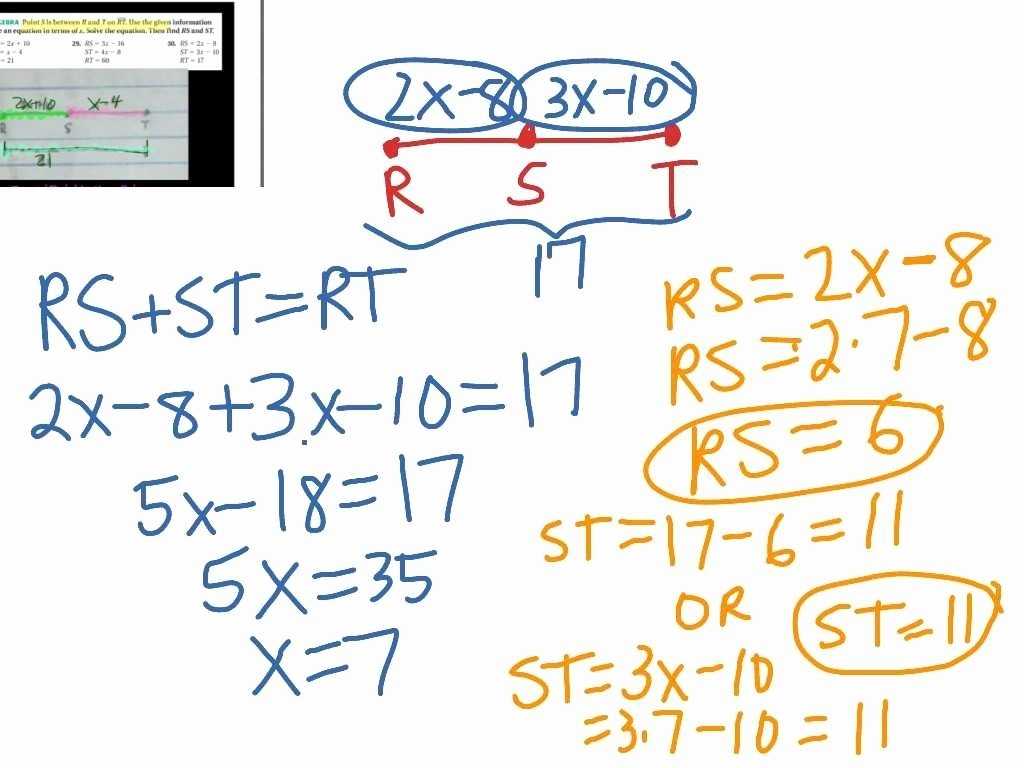 EBRA Point S is between R and T on RT. Use the given information
e an equation in terms of x. Solve the equation. Then find RS and ST.
= 2x + 10
= x − 4
= 21
29. RS = 3x − 16
ST = 4x − 8
RT = 60
30. RS = 2x − 8
ST = 3x − 10
RT = 17
2x+10 x-4
R S T
21
2x-8 3x-10
R S T
17
RS+ST=RT
2x-8+3x-10=17
5x-18=17
5x=35
x=7
RS=2x-8
RS=2·7-8
RS=6
ST=17-6=11
OR
ST=11
ST=3x-10
=3·7-10=11